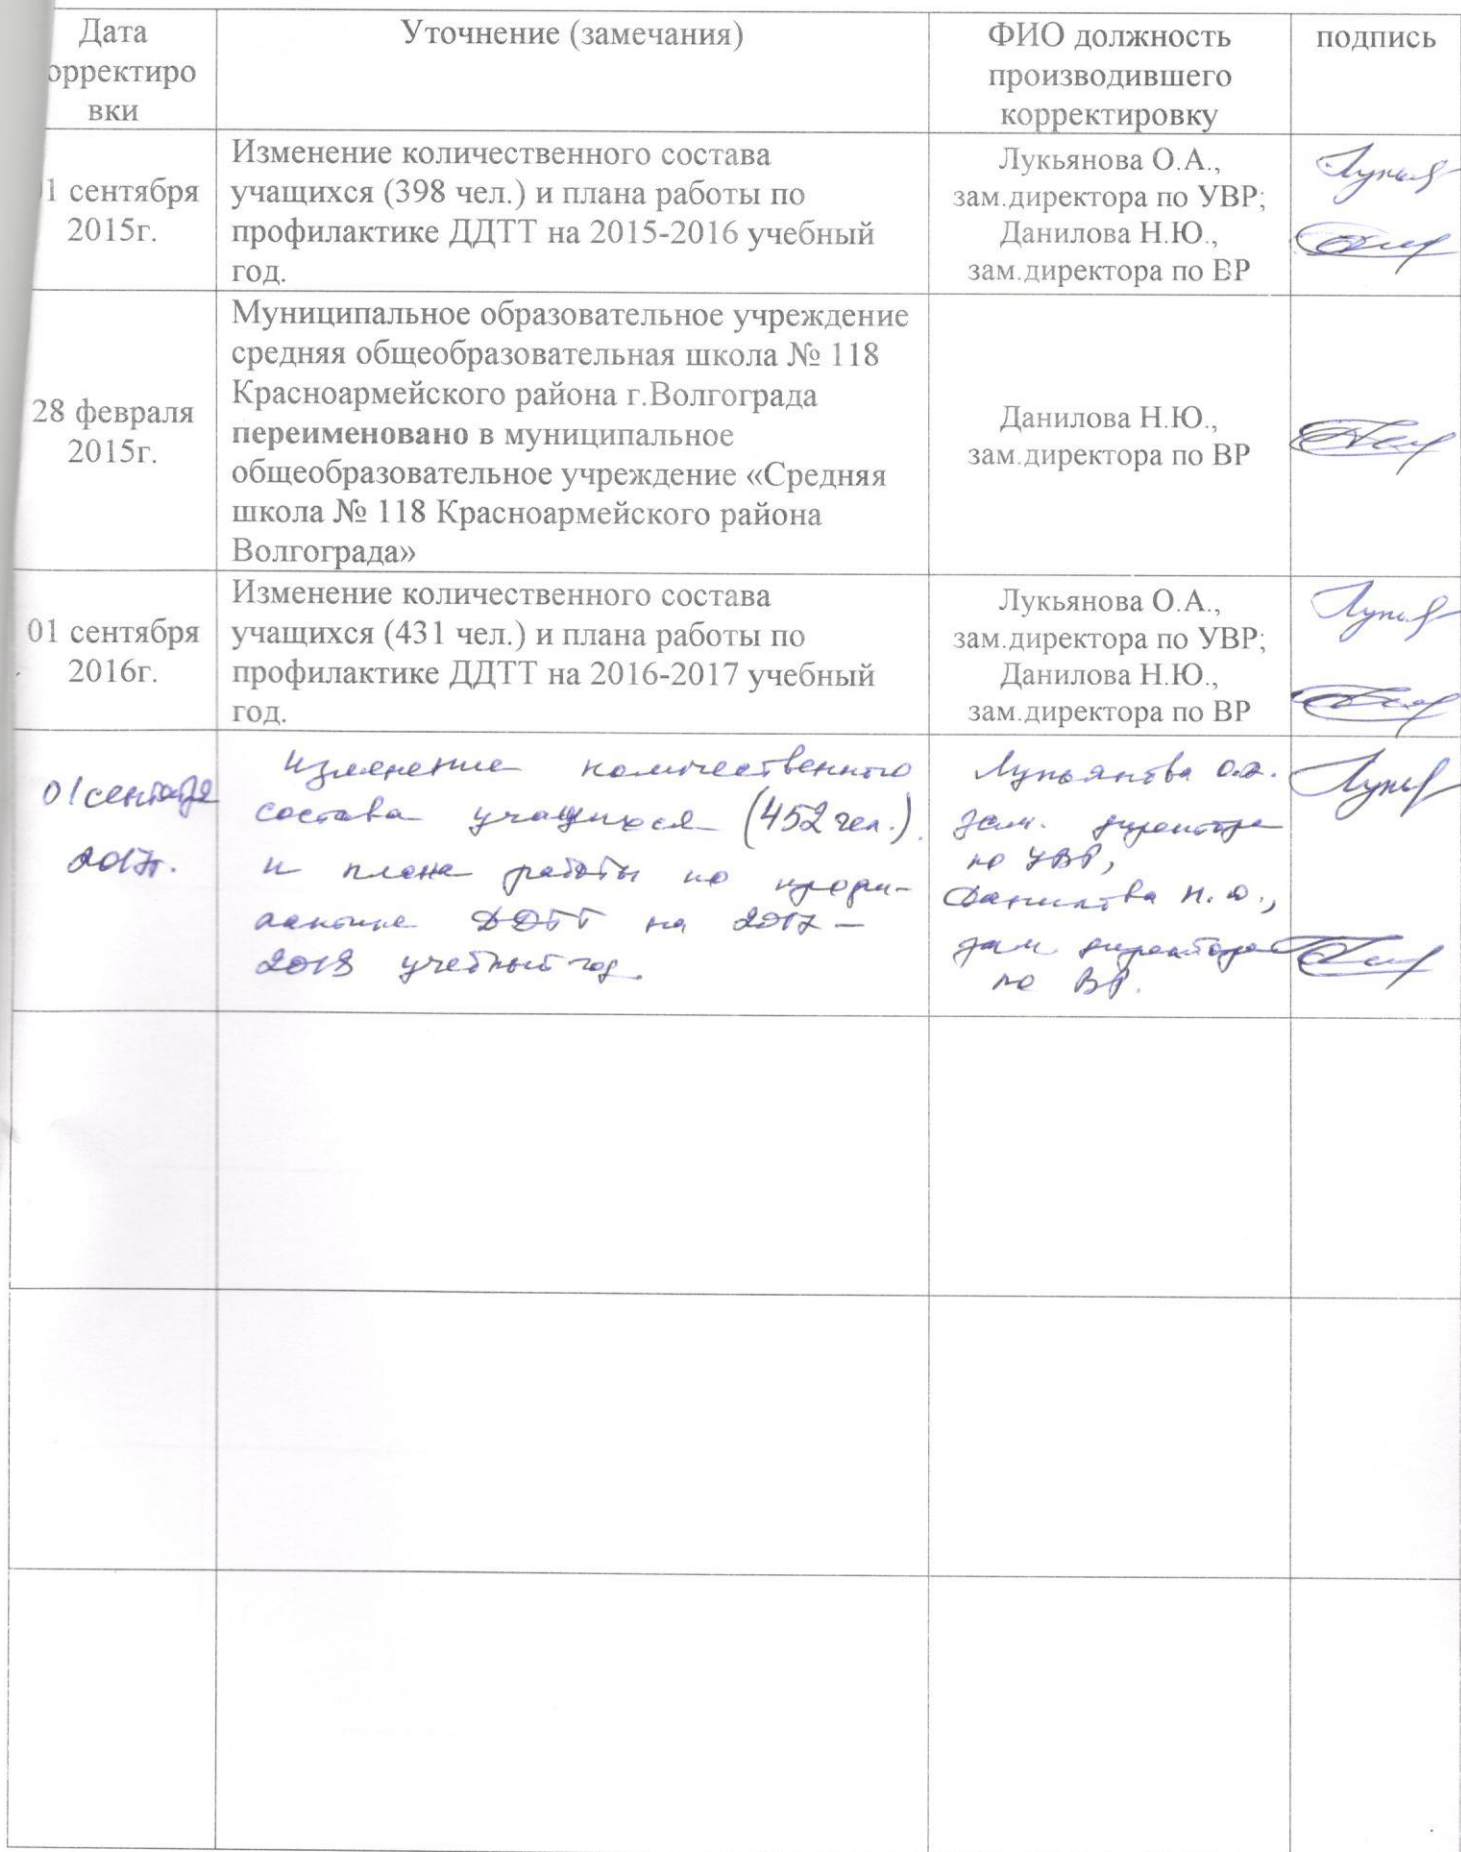 Дата
орректиро
вки
Уточнение (замечания)
ФИО должность
производившего
корректировку
подпись
1 сентября
2015г.
Изменение количественного состава
учащихся (398 чел.) и плана работы по
профилактике ДДТТ на 2015-2016 учебный
год.
Лукьянова О.А.,
зам.директора по УВР;
Данилова Н.Ю.,
зам.директора по ВР
28 февраля
2015г.
Муниципальное образовательное учреждение
средняя общеобразовательная школа № 118
Красноармейского района г.Волгограда
переименовано в муниципальное
общеобразовательное учреждение «Средняя
школа № 118 Красноармейского района
Волгограда»
Данилова Н.Ю.,
зам.директора по ВР
01 сентября
2016г.
Изменение количественного состава
учащихся (431 чел.) и плана работы по
профилактике ДДТТ на 2016-2017 учебный
год.
Лукьянова О.А.,
зам.директора по УВР;
Данилова Н.Ю.,
зам.директора по ВР
01 сентября
2017г.
Изменение количественного
состава учащихся (452 чел.)
и плана работы по профи-
лактике ДДТТ на 2017-
2018 учебный год.
Лукьянова О.А.
зам. директора
по УВР,
Данилова Н.Ю.,
зам директора
по ВР.